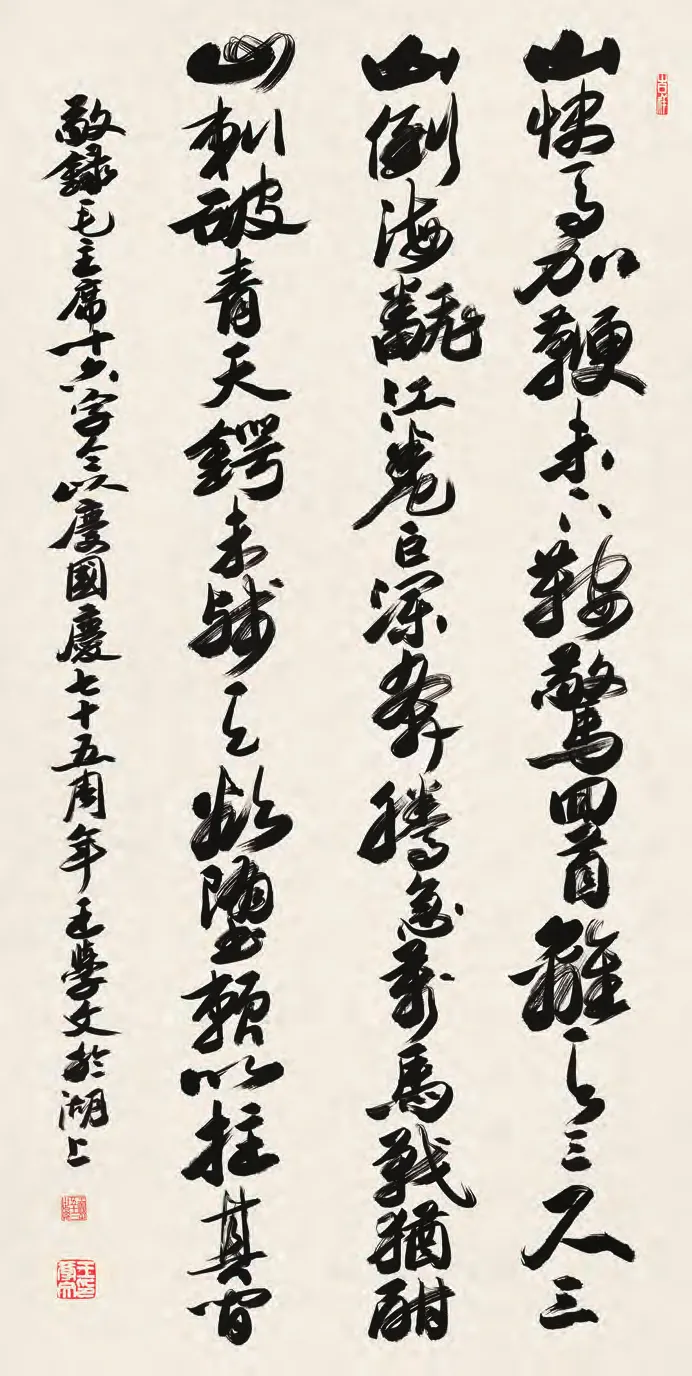 吉祥
山快馬加鞭未下鞍驚回首離天三尺三
山倒海翻江卷巨瀾奔騰急萬馬戰猶酣
山刺破青天鍔未殘天欲墮賴以拄其間
敬錄毛主席十六字令以慶國慶七十五周年王學文於湖上